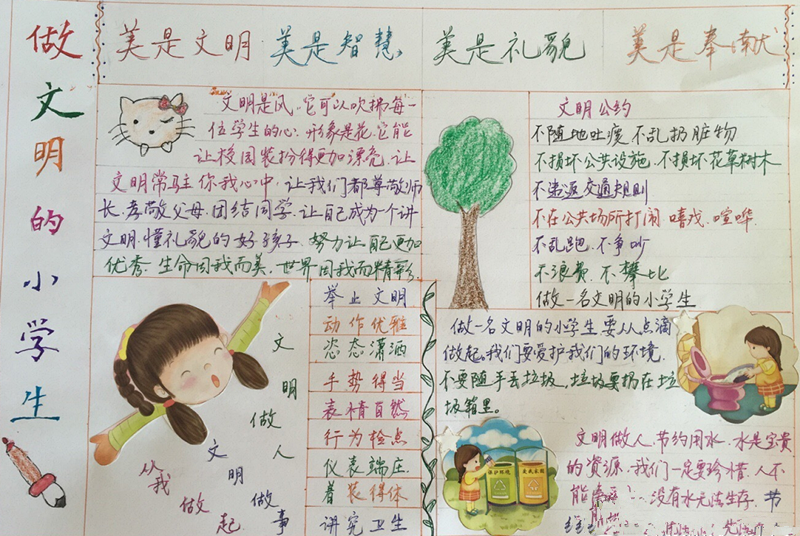 做文明的小学生
美是文明 美是智慧 美是礼貌 美是奉献
文明是风、它可以吹拂每一
位学生的心、形象是花、它能
让校园装扮得更加漂亮、让
文明常驻你我心中、让我们都尊敬师
长、孝敬父母、团结同学、让自己成为一个讲
文明、懂礼貌的好孩子、努力让自己更加
优秀、生命因我而美、世界因我而精彩
文明公约
不随地吐痰、不乱扔脏物
不损坏公共设施、不损坏花草树木
不违返交通规则
不在公共场所打闹、嘻戏、喧哗、
不乱跑、不争吵
不浪费、不攀比
做一名文明的小学生
文明做人
文明做事
从我做起
举止文明
动作优雅
姿态潇洒
手势得当
表情自然
行为检点
仪表端庄
着装得体
讲究卫生
做一名文明的小学生要从点滴
做起、我们要爱护我们的环境、
不要随手丢垃圾、垃圾要扔在垃
圾箱里。
文明做人、节约用水、水是宝贵
的资源、我们一定要珍惜、人不
能 没有水无法生存、节